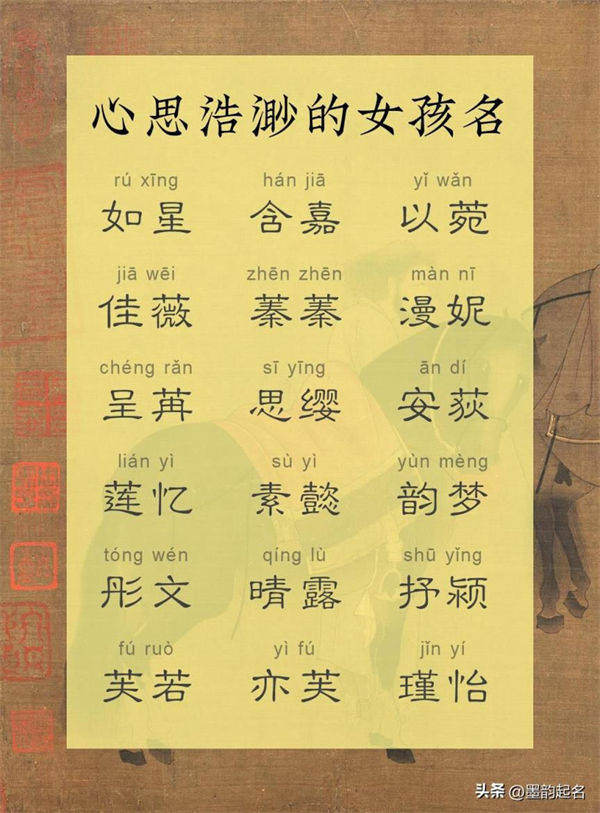 心思浩渺的女孩名
rú xīng hán jiā yǐ wǎn
如星 含嘉 以菀
jiā wēi zhēn zhēn màn nī
佳薇 蓁蓁 漫妮
chéng rǎn sī yīng ān dí
呈苒 思缨 安荻
lián yì sù yì yùn mèng
莲忆 素懿 韵梦
tóng wén qíng lù shū yǐng
彤文 晴露 抒颍
fú ruò yì fú jǐn yí
芙若 亦芙 瑾怡
头条 @墨韵起名